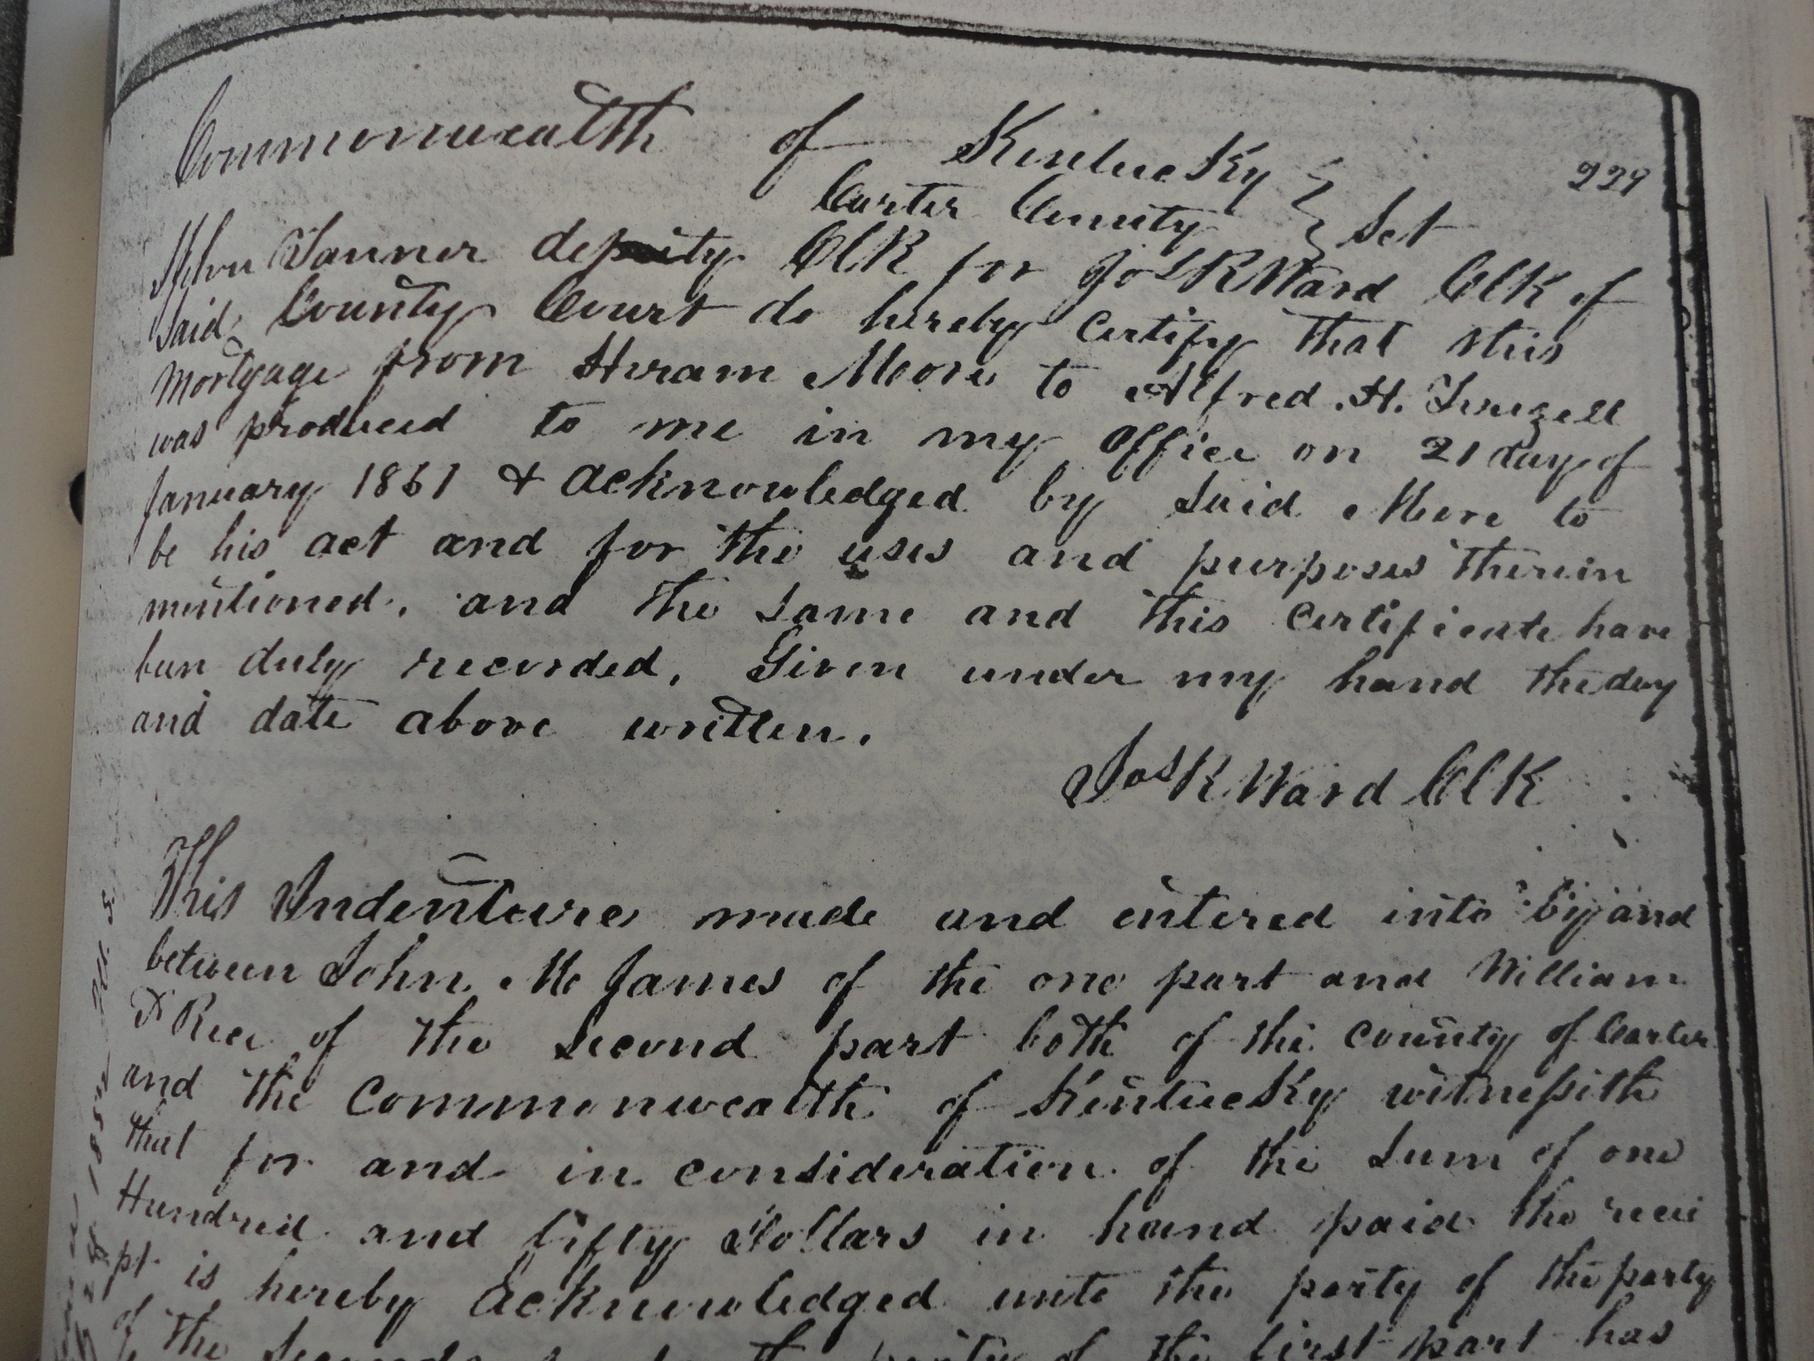 Commonwealth of Kentucky
229
Carter County Sct
I John Tanner deputy Clk for Jos R Ward Clk of
said County Court do hereby certify that this
mortgage from Hiram Moore to Alfred. H.
was produced to me in my office on 21 day of
January 1861 & acknowledged by said More to
be his act and for the uses and purposes therein
mentioned, and the same and this certificate have
ben duly recorded. Given under my hand the day
and date above written.
Jos R Ward Clk
This Indenture made and entered into by and
between John Mc James of the one part and William
Rice of the second part both of the county of Carter
and the Commonwealth of Kentucky witnesseth
that for and in consideration of the sum of one
Hundred and fifty Dollars in hand paid the recei
pt is hereby acknowledged unto the party of the party
of the first part has